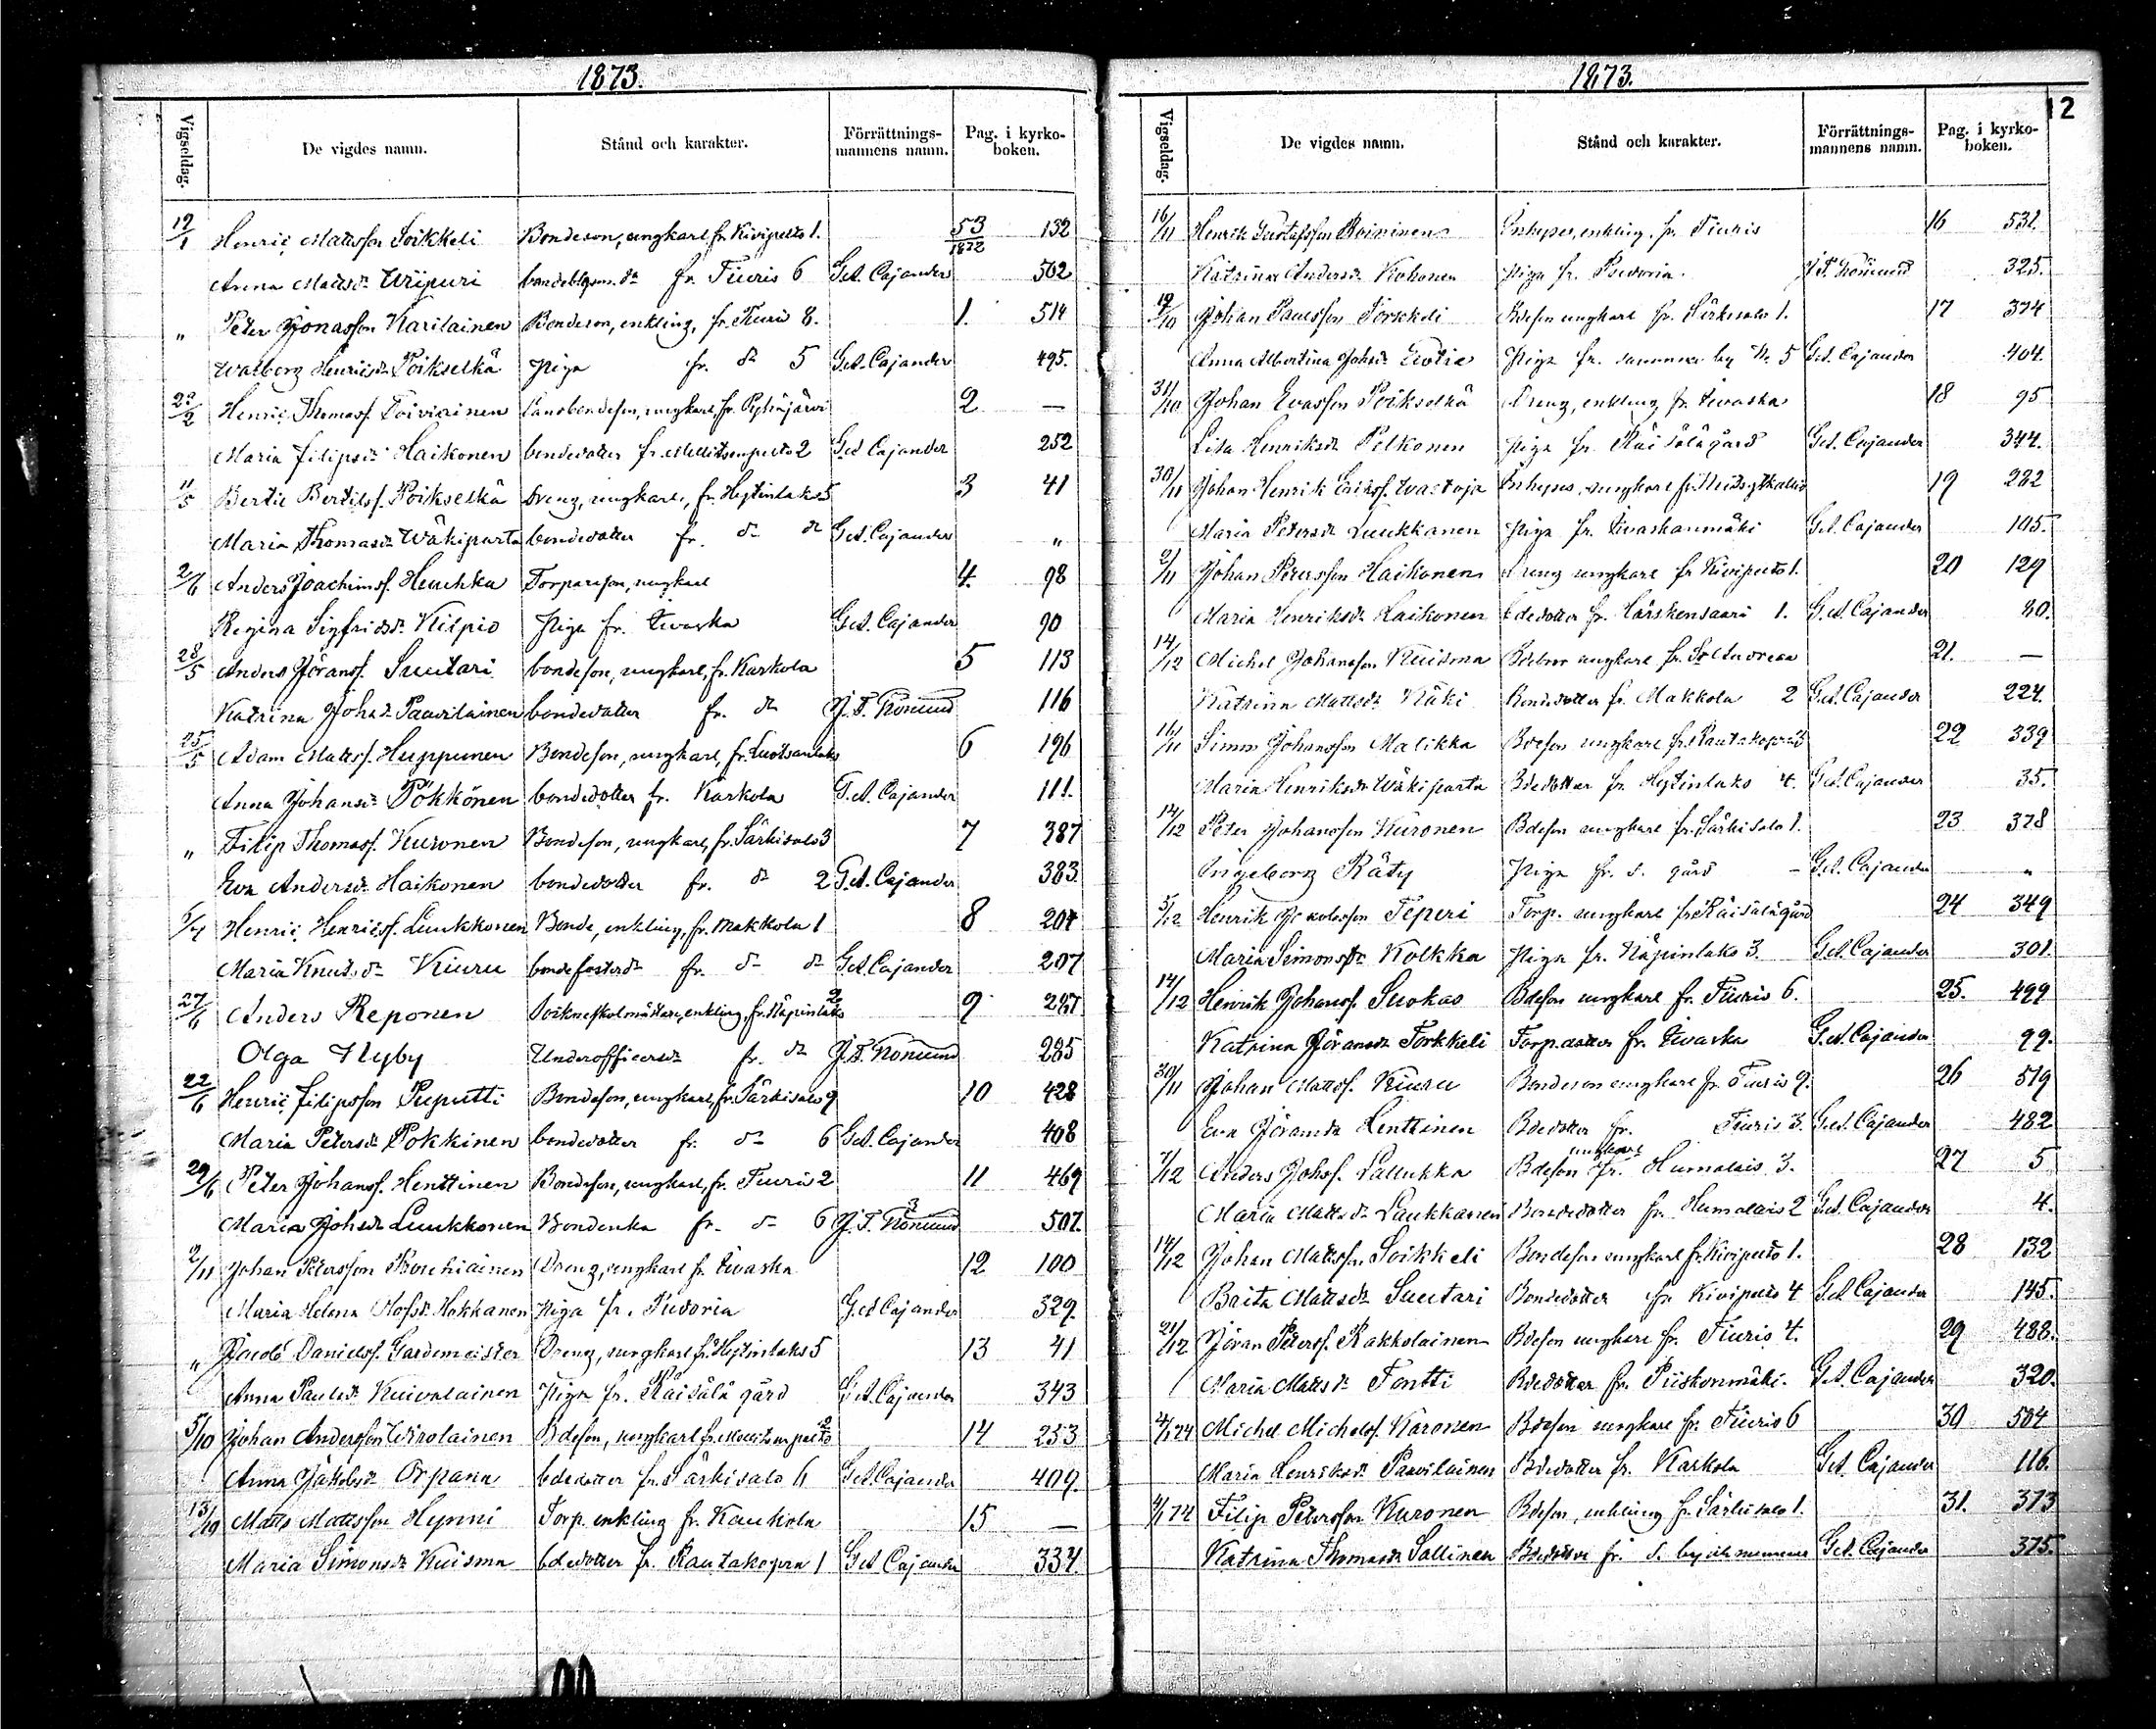 1873.
Vigseldag. De vigdes namn. Stånd och karakter. Förrättnings-mannens namn. Pag. i kyrko-boken.
19/1 Henric Mattsson Soikkeli Bondeson, ungkarl fr. Kivipelto 1. 53/1872 132
Anna Mattsdr Wiipuri fr. Tiuris 6 G.A. Cajander 502
" Peter Jonasson Karilainen Bondeson, enkling, fr. Tiuris 8. 1. 514
Walborg Henricsdr Poikselkä Piga fr. do 5 G.A. Cajander 495.
22/2 Henric Thomass. Toiviainen ungkarl, fr. Pyhäjärvi 2 —
Maria Filipsdr Haikonen bondedotter fr. Mellitsenpelto 2 G.A. Cajander 252
11/5 Bertil Bertilss. Poikselkä Dreng, ungkarl, fr. Hytinlaks 5 3 41
Maria Thomasdr Wäkiparta bondedotter fr. do do G.A. Cajander "
2/6 Anders Joachimss. Heuchka Torpareson, ungkarl 4. 98
Regina Sigfridsdr Kilpiö Piga fr. Ivaska G.A. Cajander 90
28/5 Anders Jöranss. Suutari bondeson, ungkarl, fr. Karkola 5 113
Katrina Johsdr Paavilainen bondedotter fr. do J.F. Komund 116
25/5 Adam Mattss. Huppunen Bondeson, ungkarl, fr. 6 196
Anna Johansdr Pökkönen bondedotter fr. Karkola G.A. Cajander 111.
" Filip Thomass. Kuronen Bondeson, ungkarl, fr. Särkisalo 3 7 387
Eva Andersdr Haikonen bondedotter fr. do 2 G.A. Cajander 383
Henric Henricss. Luukkonen Bonde, enkling, fr. Makkola 1 8 204
Maria Knutsdr Kiuru fr. do do G.A. Cajander 207
27/6 Anders Reponen enkling, fr. Näpinlaks 2 9 287
Olga Nyby Underofficersdr fr. do J.F. Komund 285
22/6 Henric Filipsson Puputti Bondeson, ungkarl, fr. Särkisalo 9 10 428
Maria Petersdr Pokkinen bondedotter fr. do 6 G.A. Cajander 408
29/6 Peter Johanss. Henttinen Bondeson, ungkarl, fr. Tiuris 2 11 469
Maria Johsdr Luukkonen Bondenka fr. do 6 J.F. Komund 507.
2/11 Johan Petersson Dreng, ungkarl fr. Ivaska 12 100
Maria Helena Olofsdr Hakkanen Piga fr. Pudoria G.A. Cajander 329.
" Jacob Danielss. Gardemeister Dreng, ungkarl fr. Hytinlaks 5 13 41
Anna Paulsdr Kuivalainen Piga fr. Räisälä gård G.A. Cajander 343
5/10 Johan Andersson Wirolainen Bdeson, ungkarl fr. Mellitsenpelto 2 14 253
Anna Jakobsdr Orpana bdedotter fr. Särkisalo 4 G.A. Cajander 409.
13/10 Matts Mattsson Hynni Torp. enkling fr. Kaukola 15 —
Maria Simonsdr Kuisma bdedotter fr. Rautakorpra 1 G.A. Cajander 334.
1873.
12
Vigseldag. De vigdes namn. Stånd och karakter. Förrättnings-mannens namn. Pag. i kyrko-boken.
16/11 Henrik Gustafsson Roininen Inhyses, enkling, fr. Tiuris 16 531.
Katrina Andersdr Kokonen Piga fr. Pudoria. J.F. Komund 325.
19/10 Johan Paulsson Torkkeli Bdeson ungkarl fr. Särkisalo 1. 17 374
Anna Albertina Johsdr Piga fr. samma by N. 5 G.A. Cajander 404.
31/10 Johan Evasson Poikselkä Dreng, enkling fr. Ivaska 18 95
Lisa Henriksdr Pelkonen Piga fr. Räisälägård G.A. Cajander 344.
30/11 Johan Henrik Erikss. Inhyses, ungkarl fr. 19 282
Maria Petersdr Luukkanen Piga fr. Ivaskanmäki G.A. Cajander 105.
2/11 Johan Petersson Haikonen Dreng ungkarl fr. Kivipelto 1. 20 129
Maria Henriksdr Haikonen bdedotter fr. Hörskensaari 1. G.A. Cajander 80.
14/12 Michel Johansson Kuisma ungkarl fr. St Andreæ 21. —
Katrina Mattsdr Käki Bondedotter fr. Makkola 2 G.A. Cajander 224.
16/11 Simon Johansson Malikka Bdeson ungkarl fr. Rautakorpra 3 22 339
Maria Henriksdr Wäkiparta Bdedotter fr. Hytinlaks 4. G.A. Cajander 35.
14/12 Peter Johansson Kuronen Bdeson ungkarl fr. Särkisalo 1. 23 378
Ingeborg Räty Piga fr. s. gård G.A. Cajander "
5/12 Henrik Jakobsson Teperi Torp. ungkarl fr. Räisälägård 24 349
Maria Simonsdr Kolkka Piga fr. Näpinlaks 3. G.A. Cajander 301.
14/12 Henrik Johanss. Suokas Bdeson ungkarl fr. Tiuris 6. 25. 499
Katrina Jöransdr Torkkeli Torp.dotter fr. Ivaska G.A. Cajander 99.
30/11 Johan Mattss. Kiuru Bondeson ungkarl fr. Tiuris 9. 26 519
Eva Jöransdr Henttinen Bdedotter fr. Tiuris 3. G.A. Cajander 482
7/12 Anders Johss. Lallukka Bdeson ungkarl fr. Humalais 3. 27 5
Maria Mattsdr Laukkanen Bondedotter fr. Humalais 2 G.A. Cajander 4.
14/12 Johan Mattsson Soikkeli Bondeson ungkarl fr. Kivipelto 1. 28 132
Brita Mattsdr Suutari Bondedotter fr. Kivipelto 4 G.A. Cajander 145.
21/12 Jöran Peterss. Rakkolainen Bdeson ungkarl fr. Tiuris 4. 29 488.
Maria Mattsdr Tontti Bdedotter fr. Piiskonmäki. G.A. Cajander 320.
4/1 74 Michel Michelss. Karonen Bdeson ungkarl fr. Tiuris 6 30 504
Maria Henriksdr Paavilainen Bdedotter fr. Karkola G.A. Cajander 116.
4/1 74 Filip Petersson Kuronen Bdeson, enkling fr. Särkisalo 1. 31. 373
Katrina Thomasdr Sallinen Bdedotter fr. s. by G.A. Cajander 375.